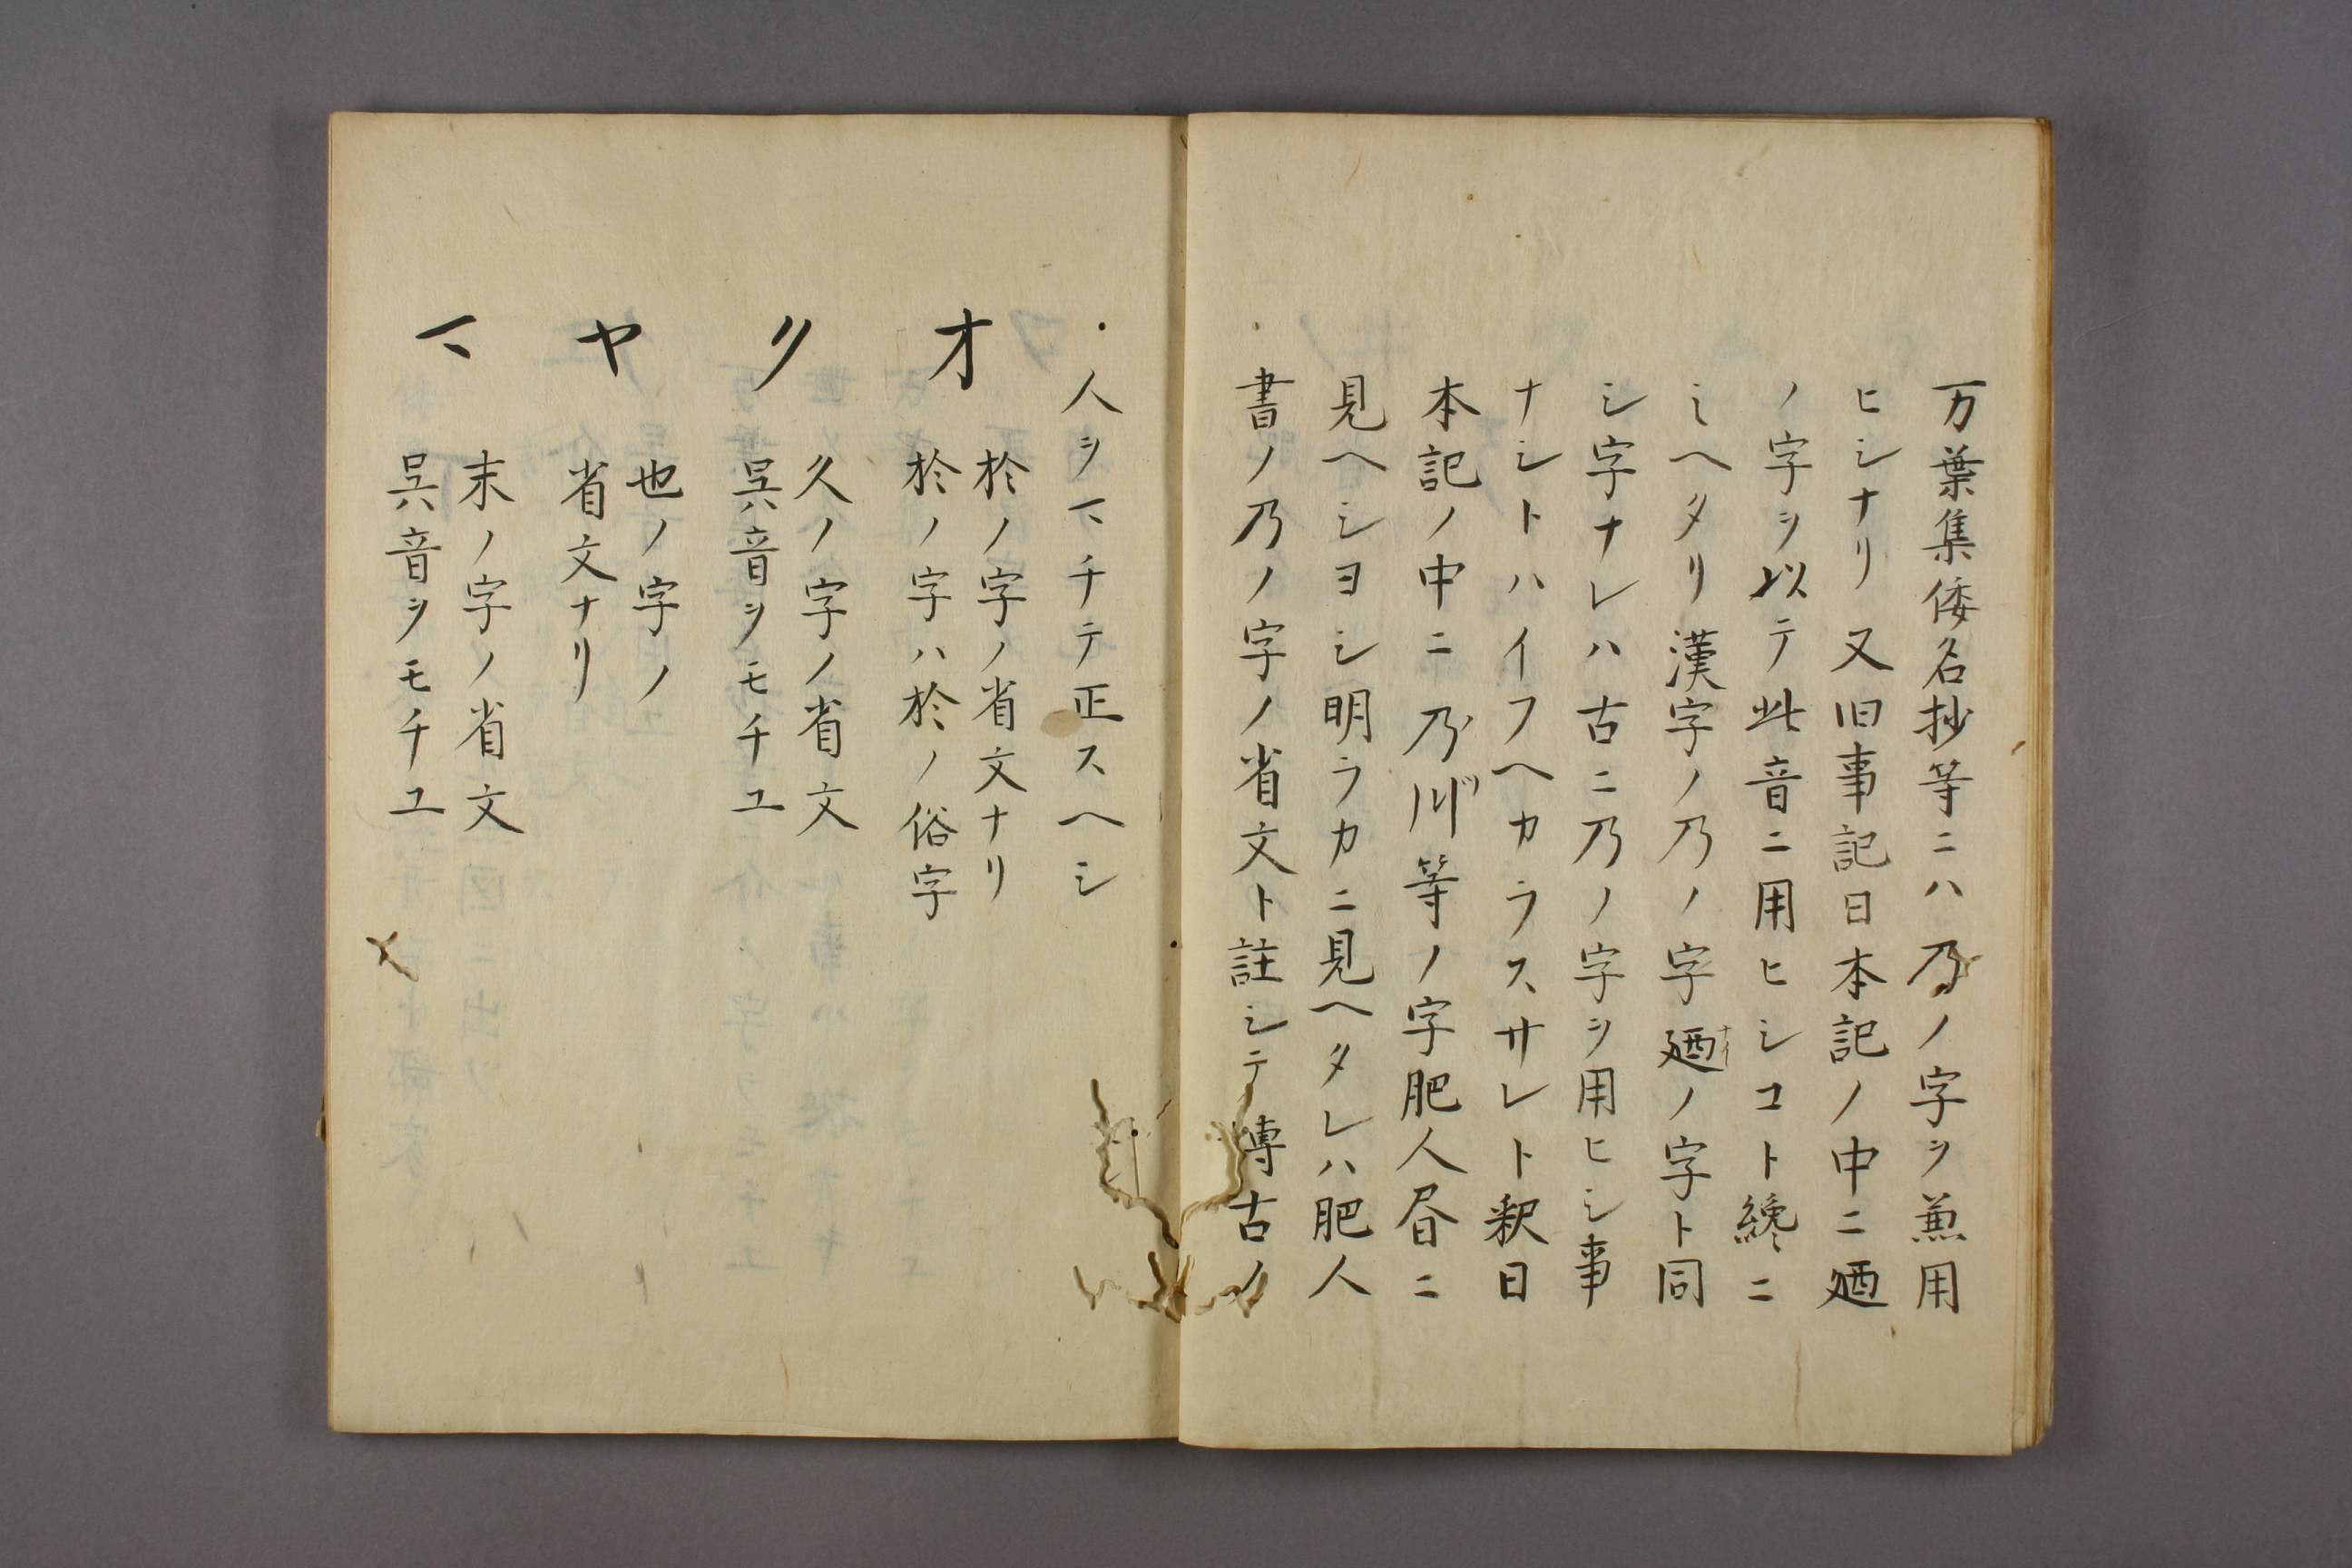 万葉集倭名抄等ニハ乃ノ字ヲ兼用
ヒシナリ又旧事記日本記ノ中ニ廼
ノ字ヲ以テ此音ニ用ヒシコト纔ニ
ミヘタリ漢字ノ乃ノ字廼ノ字ト同
ナイ
シ字ナレハ古ニ乃ノ字ヲ用ヒシ事
ナシトハイフヘカラスサレト釈日
本記ノ中ニ乃川等ノ字肥人昏ニ
見ヘシヨシ明ラカニ見ヘタレハ肥人
書ノ乃ノ字ノ省文ト註シテ博古ノ
人ヲマチテ正スヘシ
オ
於ノ字ノ省文ナリ
於ノ字ハ於ノ俗字
ク
久ノ字ノ省文
呉音ヲモチユ
ヤ
也ノ字ノ
省文ナリ
マ
末ノ字ノ省文
呉音ヲモチユ